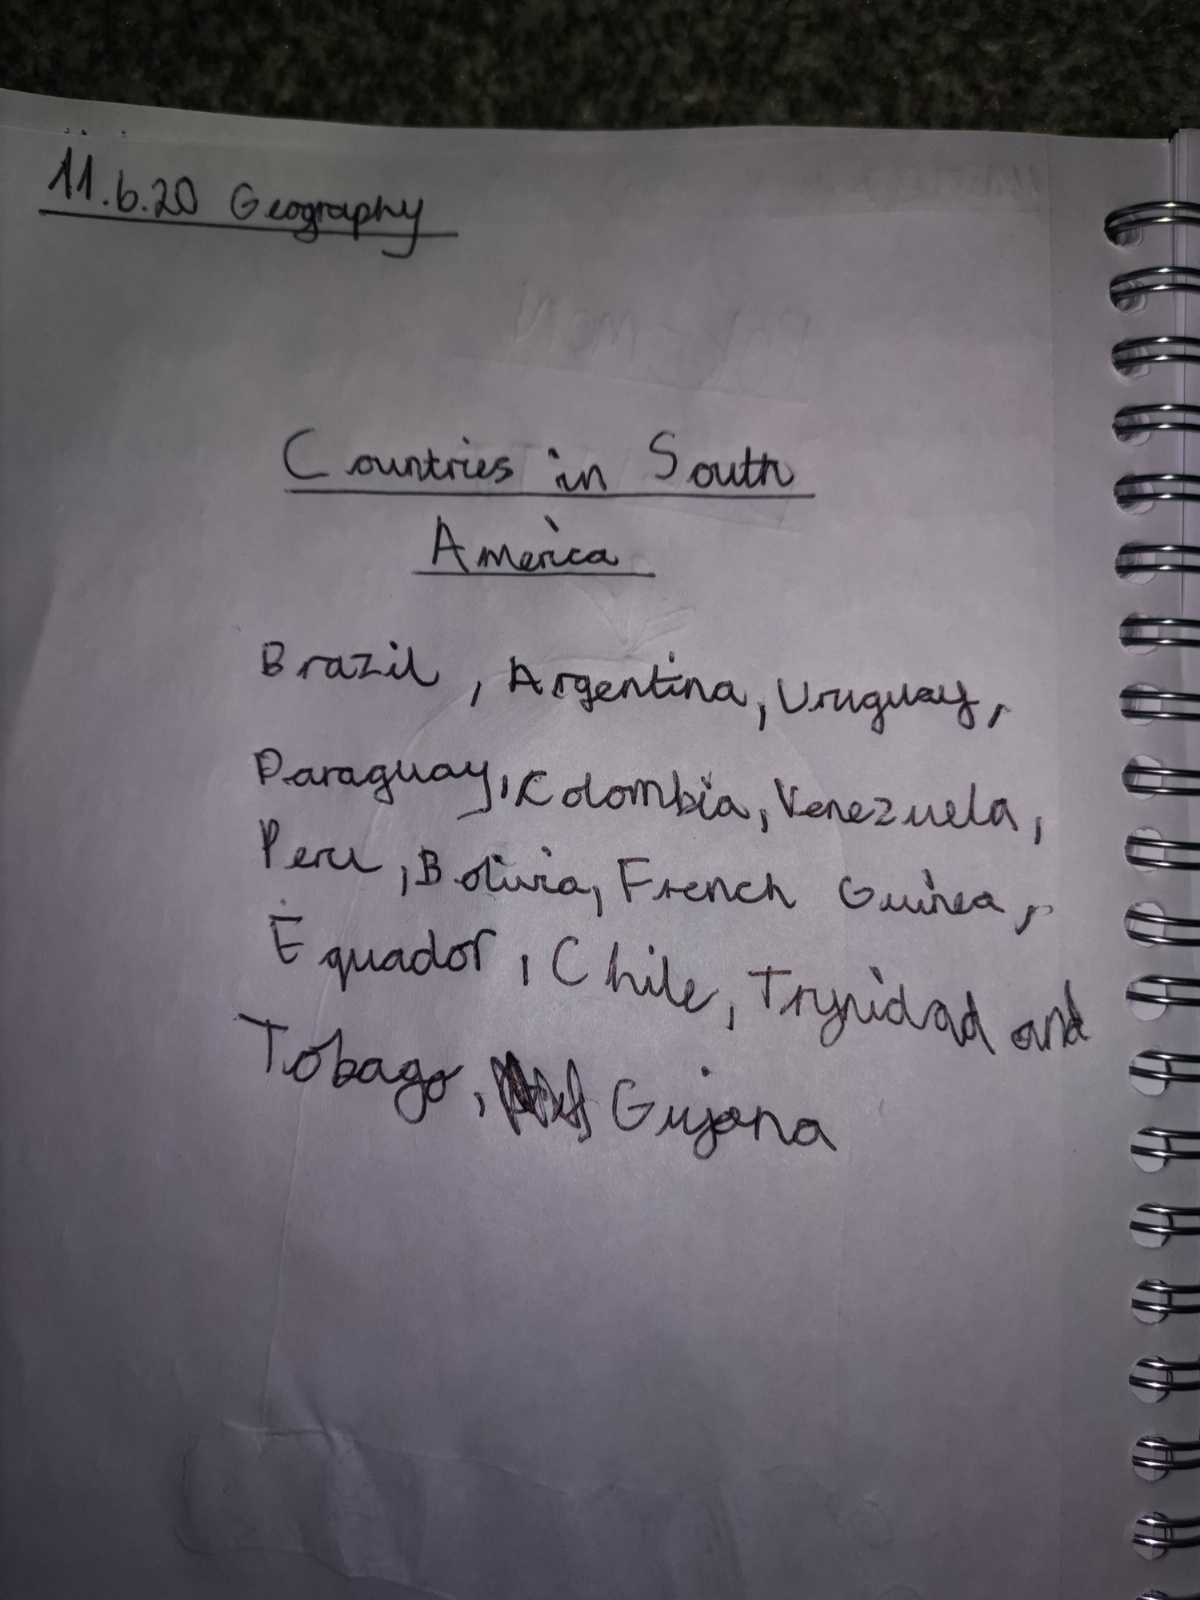 11.6.20 Geography
Countries in South
America
Brazil, Argentina, Uruguay,
Paraguay, Colombia, Venezuela,
Peru, Bolivia, French Guinea,
Equador, Chile, Trynidad and
Tobago, Gujana